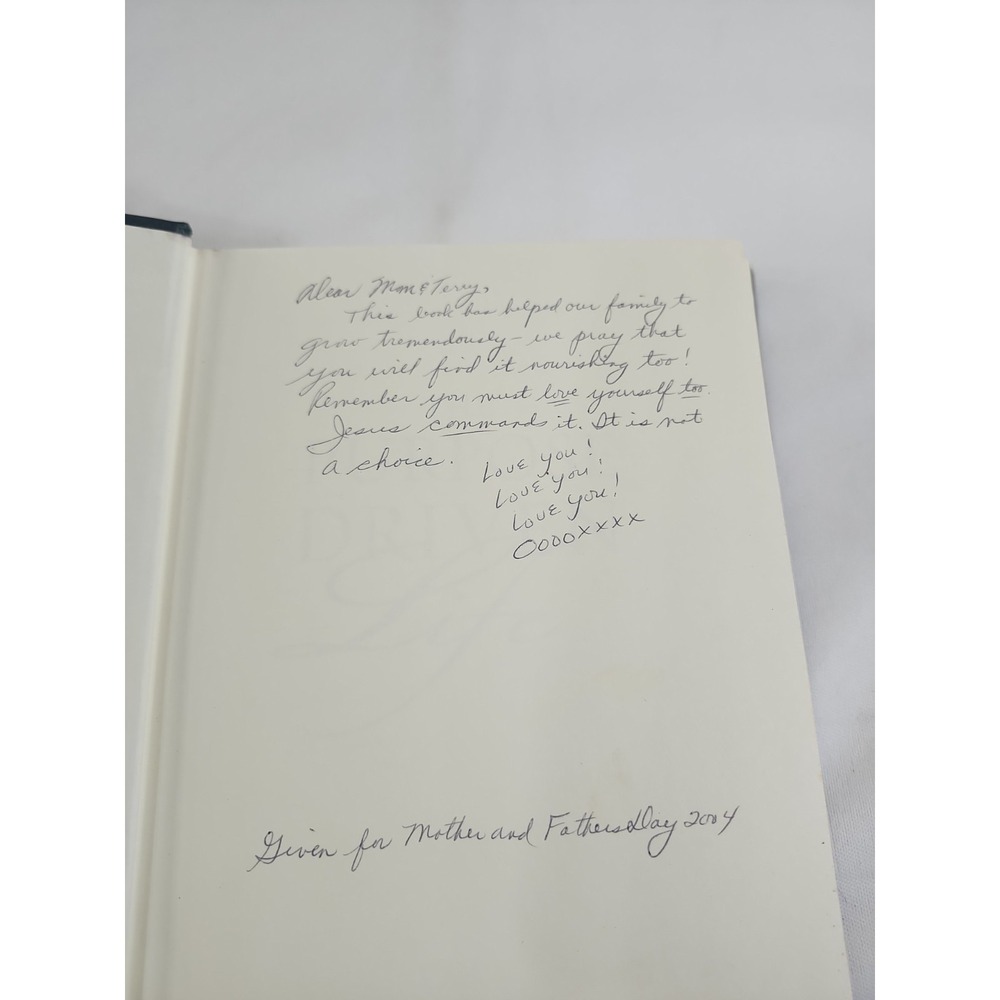 Dear Mom & Terry,
This book has helped our family to
grow tremendously - we pray that
you will find it nourishing too!
Remember you must love yourself too.
Jesus commands it. It is not
a choice.
Love you!
Love you!
Love you!
OOOOXXXX
Given for Mother and Fathers Day 2004